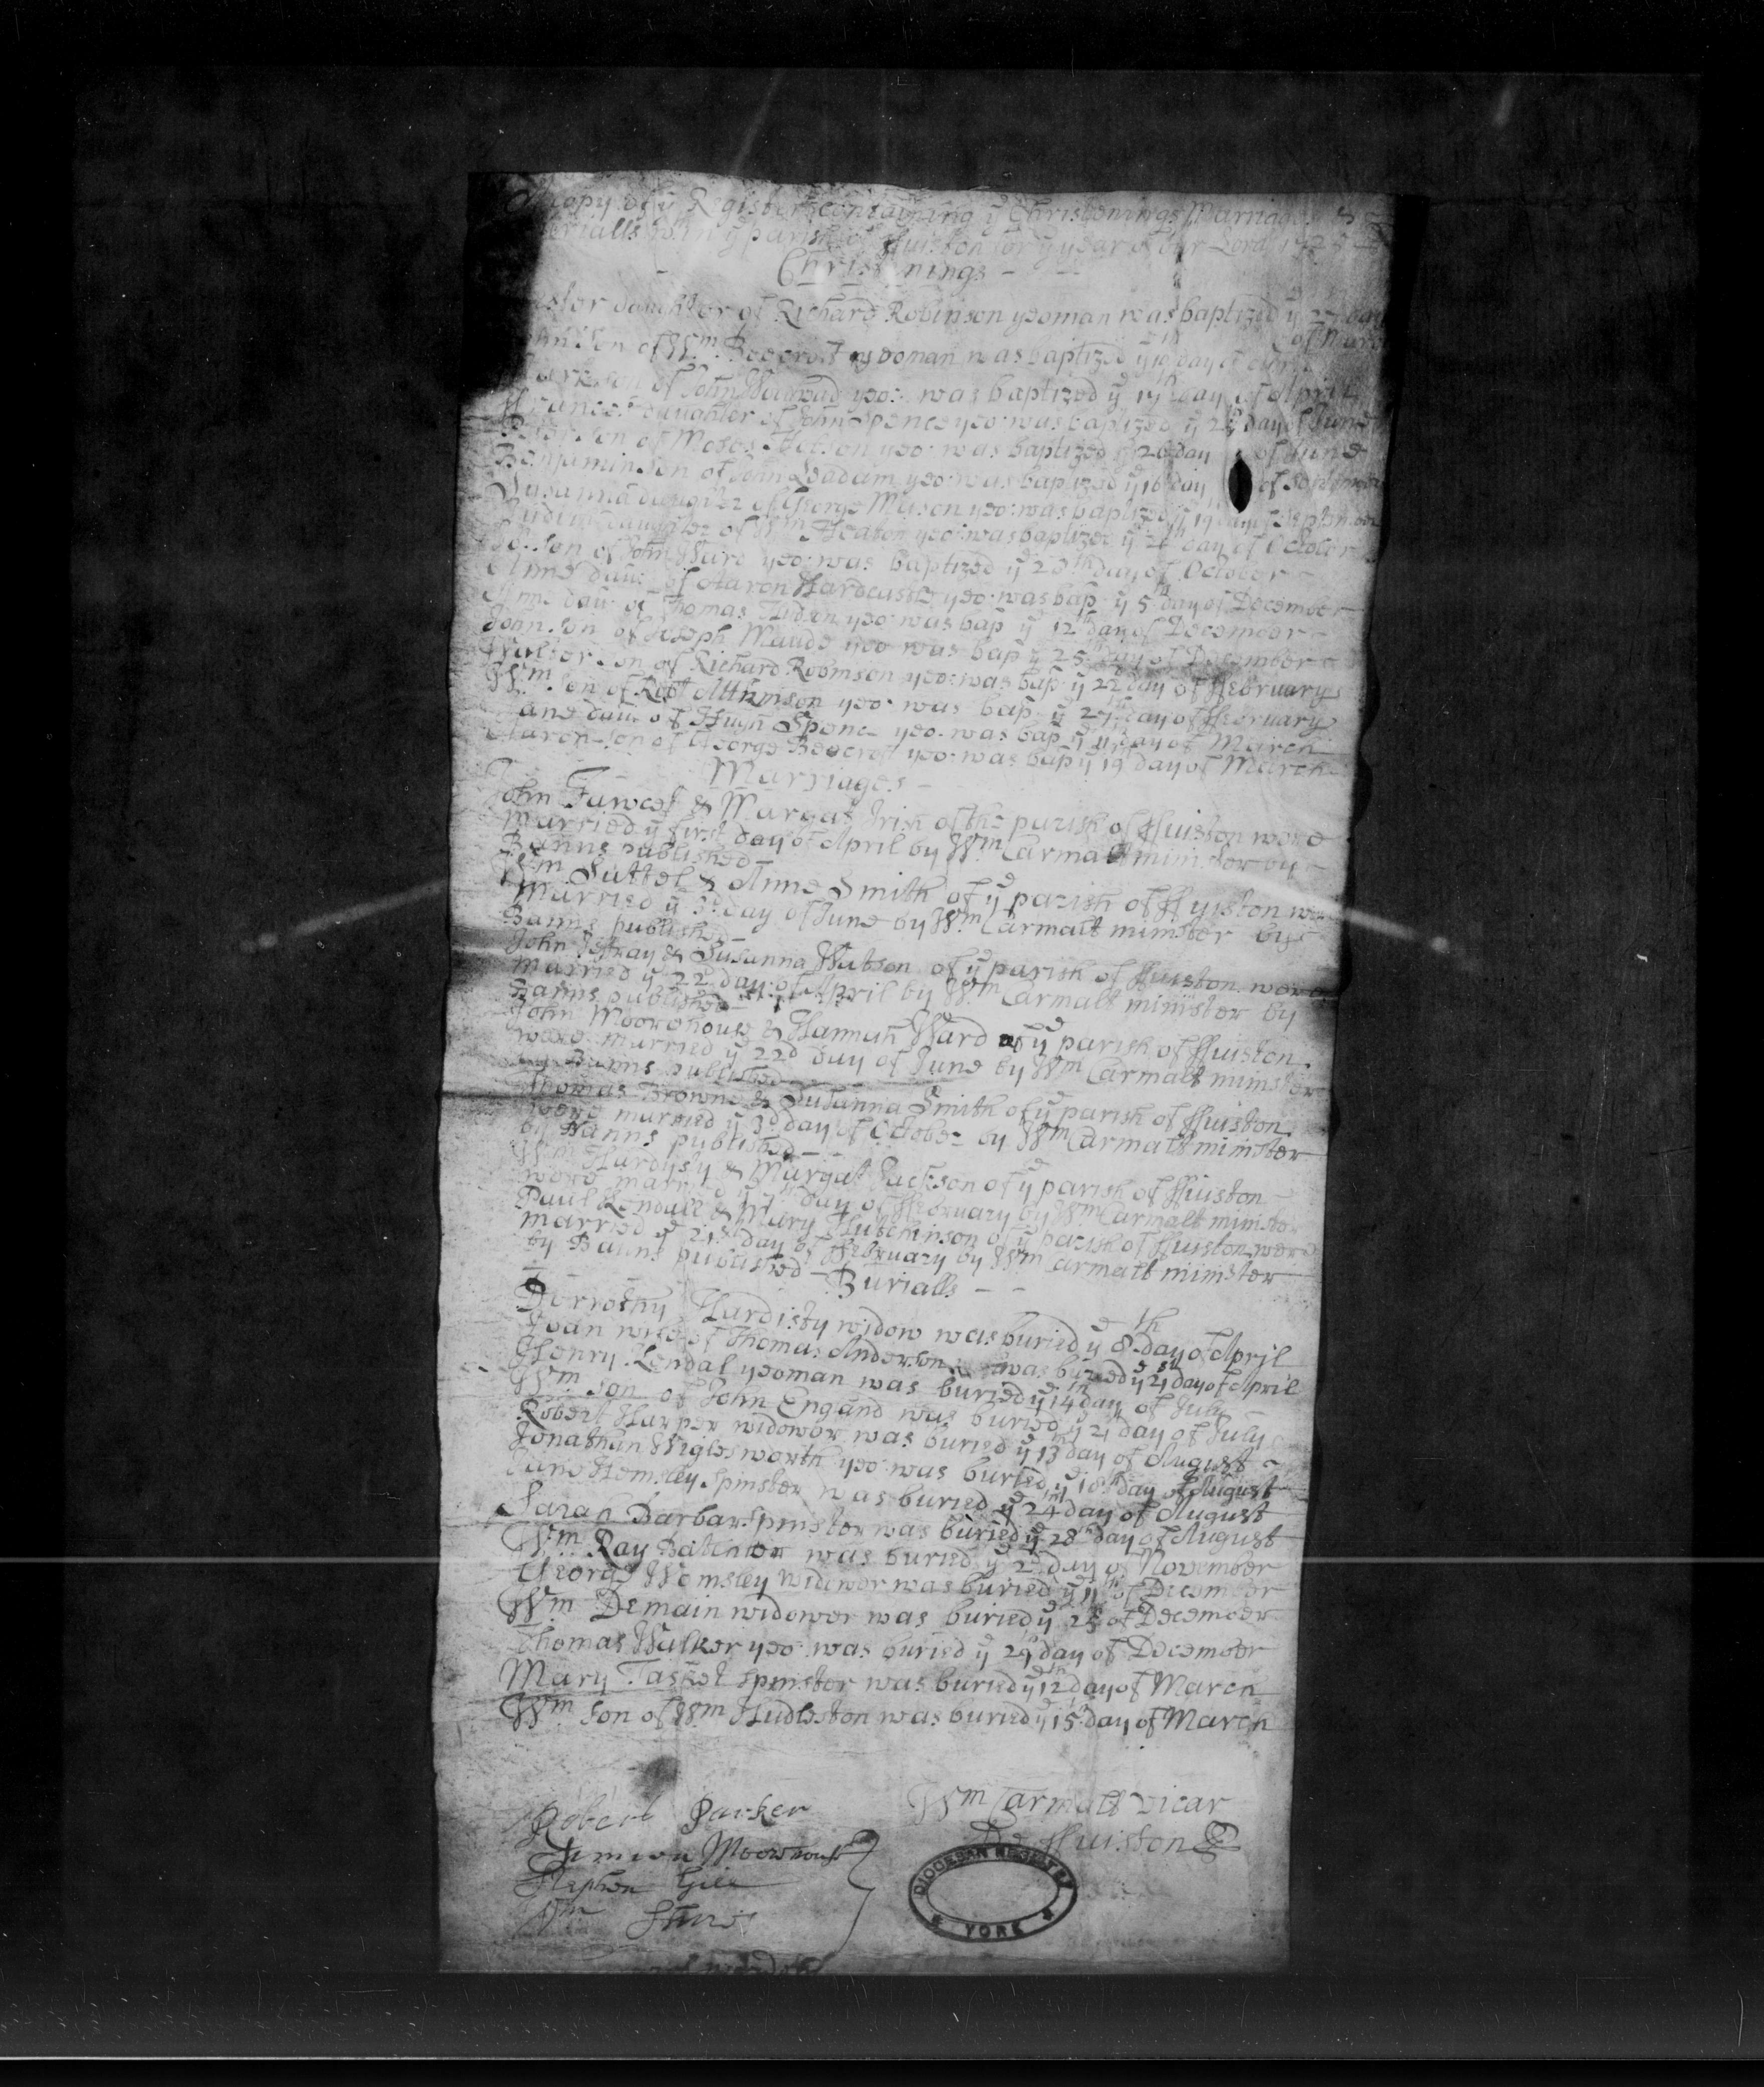 A Copy of yͤ Register contayning yͤ Christenings Marriages &
Burialls wthin yͤ parish of Fuiston for yͤ year of our Lord 172
Christnings
daughter of Richard Robinson yeoman was baptized yͤ 27 day
of March
Son of Wm Beecroft yeoman was baptized yͤ day of
son of John yeo: was baptized yͤ 19th day of April
Frances daughter of John Spence yeo: was baptized yͤ day of June
Peter Son of Moses yeo: was baptized yͤ 26 day of June
Benjamin Son of John yeo: was baptized yͤ 16 day of September
Susanna daughter of George Mason yeo: was baptized yͤ 19 day of September
Judith daughter of Wm Heaton yeo: was baptized yͤ day of October
son of John Ward yeo: was baptized yͤ 20th day of October
Anne dau: of Aaron Hardcastle yeo: was bap: yͤ 5th day of December
Anne dau: of Thomas yeo: was bap: yͤ 12th day of December
John Son of Joseph Maude yeo: was bap: yͤ 25th day of December
Walter Son of Richard Robinson yeo: was bap: yͤ 22d day of February
Wm Son of Robt Attkinson yeo: was bap: yͤ 27th day of February
Jane dau: of Hugh Spence yeo: was bap: yͤ 11th day of March
Aaron son of George Beecroft yeo: was bap: yͤ 19 day of March
Marriages
John Fawcet & Margat Irish of the parish of Fuiston were
Married yͤ first day of April by Wm Carmalt minister by
Banns published
Wm Suttel & Anne Smith of yͤ parish of Fuiston were
Married yͤ 3d day of June by Wm Carmalt minister by
Banns published
John & Susanna Watson of yͤ parish of Fuiston were
Married yͤ 22d day of April by Wm Carmalt minister by
Banns published
John Moorehouse & Hannah Ward of yͤ parish of Fuiston
were married yͤ 22d day of June by Wm Carmalt minister
by Banns published
Thomas Browne & Susanna Smith of yͤ parish of Fuiston
were married yͤ 3d day of October by Wm Carmalt minister
by Banns published
Wm Hardysty & Margat Jackson of yͤ parish of Fuiston
were married yͤ day of February by Wm Carmalt minister
Paul Kendall & Mary Hutchinson of yͤ parish of Fuiston were
married yͤ 21st day of February by Wm Carmalt minister
by Banns published
Burialls
Dorrothy Hardisty widow was buried yͤ 8th day of April
Joan wife of Thomas Anderson was buried yͤ 21st day of April
Henry Kendal yeoman was buried yͤ 14th day of July
Wm son of John Engand was buried yͤ 21 day of July
Robert Harper widower was buried yͤ 13th day of August
Jonathan Wiglesworth yeo: was buried yͤ 18th day of August
Jane Homsley Spinster was buried yͤ 24th day of August
Sarah Barbar Spinster was buried yͤ 28th day of August
Wm Ray Batchlor was buried yͤ 2d day of November
George Womsley widower was buried yͤ 11th of December
Wm Demain widower was buried yͤ 25 of December
Thomas Walker yeo: was buried yͤ 29th day of December
Mary Tasket Spinster was buried yͤ 12th day of March
Wm Son of Wm Hudleston was buried yͤ 15th day of March
Robert Parker
Wm Carmalt vicar
De Fuiston
Simion Moorhouse
Stephen Gill
Wm
DIOCESAN REGISTRY
YORK